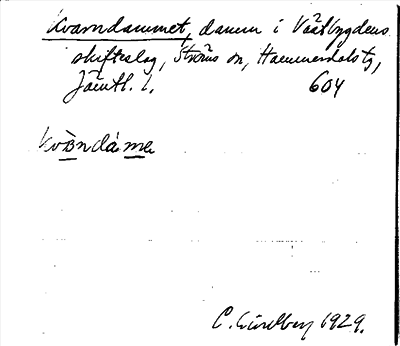 Kvarndammet, damm i Västbygdens
skifteslag, Ströms sn, Hammerdals tg,
Jämtl. l. 604
kvɷndáme
C. Lindberg 1929.